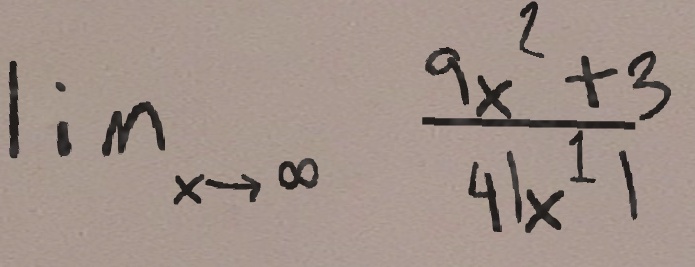 lim x→∞ (9x² + 3)/(4|x¹|)